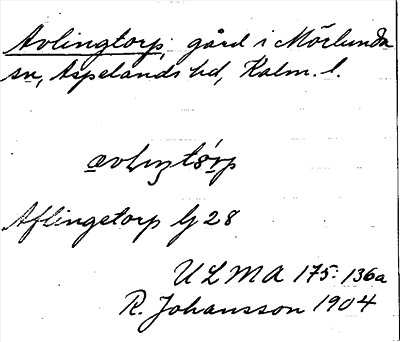 Avlingtorp, gård i Mörlunda
sn, Aspelands hd, Kalm. l.
Aflingetorp G 28
ULMA 175: 136a
R. Johansson 1904